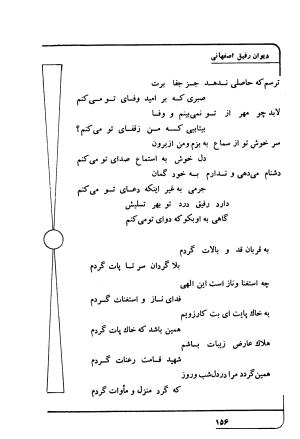 دیوان رفیق اصفهانی
ترسم که حاصلی ندهد جز جفا برت
صبری که بر امید وفای تو می‌کنم
لابد چو مهر از تو نمی‌بینم و وفا
بیتابیی که من زقفای تو می‌کنم؟
سر خوش تو از سماع به بزم ومن ازبرون
دل خوش به استماع صدای تو می‌کنم
دشنام می‌دهی و ندارم به خود گمان
جرمی به غیر اینکه دعای تو می‌کنم
دارد رفیق درد تو بهر تسلیش
گاهی به اوبگو که دوای تومی‌کنم
به قربان قد و بالات گردم
بلا گردان سر تا پات گردم
چه استغنا وناز است این الهی
فدای ناز و استغنات گردم
به خاك پایت ای بت کارزویم
همین باشد که خاك پات گردم
هلاك عارض زیبات باشم
شهید قامت رعنات گردم
همین‌گردد مرا دردل‌شب وروز
که گرد منزل و مأوات گردم
۱۵۶